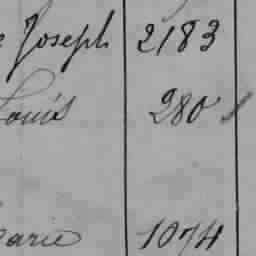 Joseph 2183
Louis 280
Marie 1074